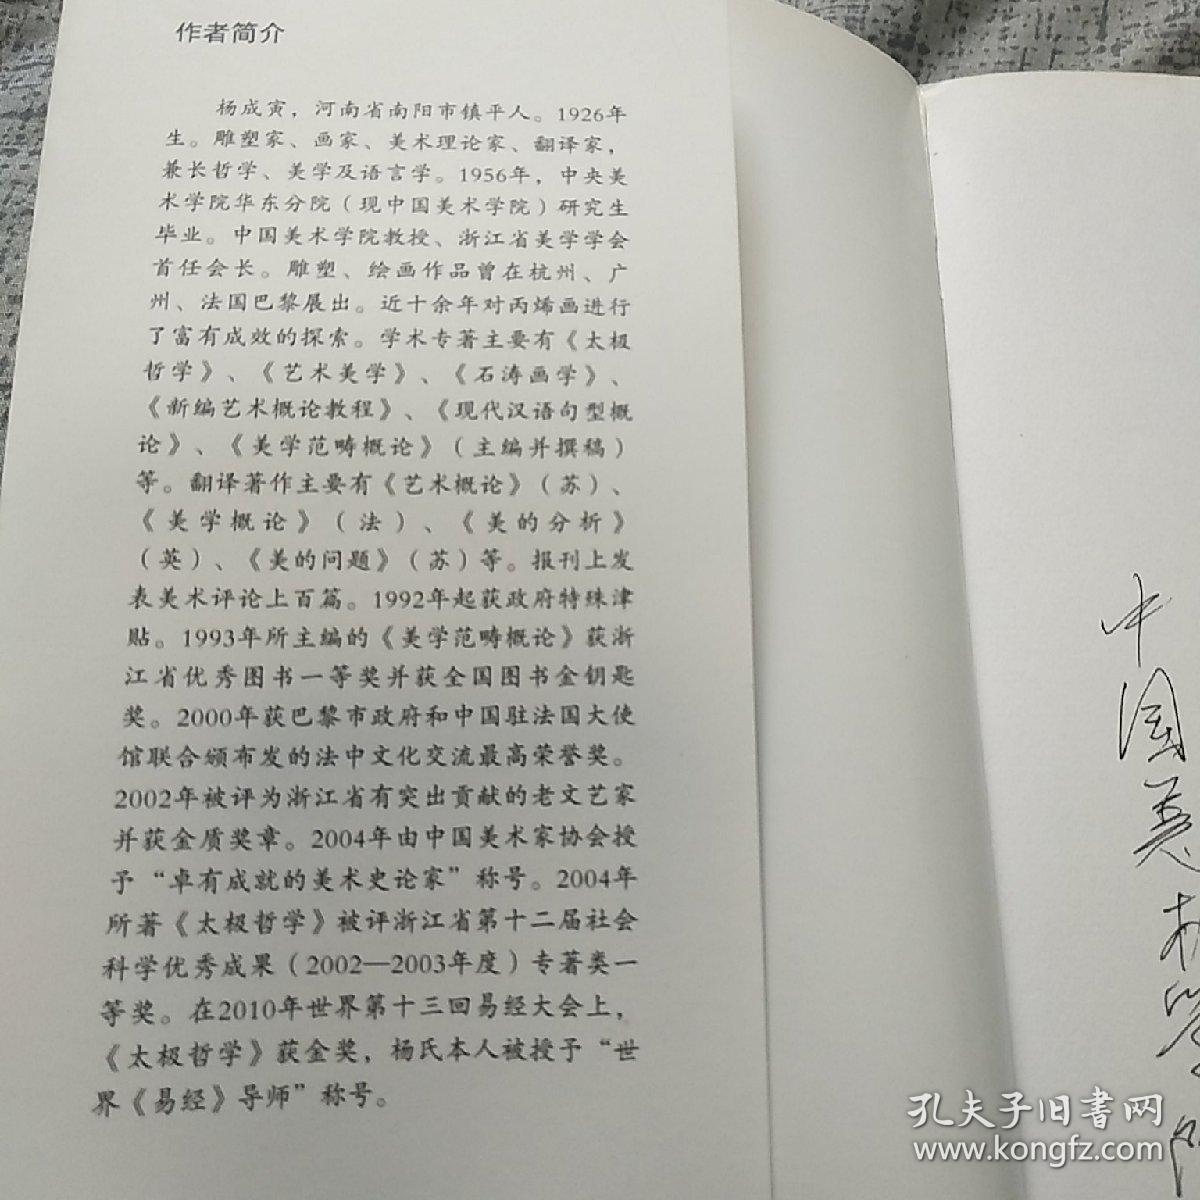 作者简介
杨成寅，河南省南阳市镇平人。1926年
生。雕塑家、画家、美术理论家、翻译家，
兼长哲学、美学及语言学。1956年，中央美
术学院华东分院（现中国美术学院）研究生
毕业。中国美术学院教授、浙江省美学学会
首任会长。雕塑、绘画作品曾在杭州、广
州、法国巴黎展出。近十余年对丙烯画进行
了富有成效的探索。学术专著主要有《太极
哲学》、《艺术美学》、《石涛画学》、
《新编艺术概论教程》、《现代汉语句型概
论》、《美学范畴概论》（主编并撰稿）
等。翻译著作主要有《艺术概论》（苏）、
《美学概论》（法）、《美的分析》
（英）、《美的问题》（苏）等。报刊上发
表美术评论上百篇。1992年起获政府特殊津
贴。1993年所主编的《美学范畴概论》获浙
江省优秀图书一等奖并获全国图书金钥匙
奖。2000年获巴黎市政府和中国驻法国大使
馆联合颁布发的法中文化交流最高荣誉奖。
2002年被评为浙江省有突出贡献的老文艺家
并获金质奖章。2004年由中国美术家协会授
予“卓有成就的美术史论家”称号。2004年
所著《太极哲学》被评浙江省第十二届社会
科学优秀成果（2002—2003年度）专著类一
等奖。在2010年世界第十三回易经大会上，
《太极哲学》获金奖，杨氏本人被授予“世
界《易经》导师”称号。
中国美术学院
孔夫子旧书网
www.kongfz.com